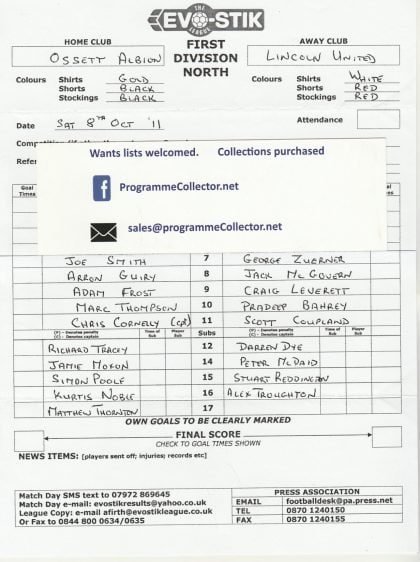 THE
EVO-STIK
LEAGUE
HOME CLUB FIRST AWAY CLUB
OSSETT ALBION DIVISION LINCOLN UNITED
NORTH
Colours Shirts GOLD Colours Shirts WHITE
Shorts BLACK Shorts RED
Stockings BLACK Stockings RED
Date SAT 8TH OCT '11 Attendance
Wants lists welcomed. Collections purchased
Goal Times
ProgrammeCollector.net
sales@programmeCollector.net
JOE SMITH 7 GEORGE ZUERNER
ARRON GUIRY 8 JACK MCGOVERN
ADAM FROST 9 CRAIG LEVERETT
MARC THOMPSON 10 PRADEEP BAHREY
CHRIS CORNELY (cpt) 11 SCOTT COUPLAND
(P) - Denotes penalty Time of Sub Player Sub Subs (P) - Denotes penalty Time of Sub Player Sub
(C) - Denotes captain (C) - Denotes captain
RICHARD TRACEY 12 DARREN DYE
JAMIE MOXON 14 PETER MCDAID
SIMON POOLE 15 STUART REDDINGTON
KURTIS NOBLE 16 ALEX TROUGHTON
MATTHEW THORNTON 17
OWN GOALS TO BE CLEARLY MARKED
FINAL SCORE
CHECK TO GOAL TIMES SHOWN
NEWS ITEMS: [players sent off; injuries; records etc]
Match Day SMS text to 07972 869645
Match Day e-mail: evostikresults@yahoo.co.uk
League Copy: e-mail afirth@evostikleague.co.uk
Or Fax to 0844 800 0634/0635
PRESS ASSOCIATION
EMAIL footballdesk@pa.press.net
TEL 0870 1240150
FAX 0870 1240155